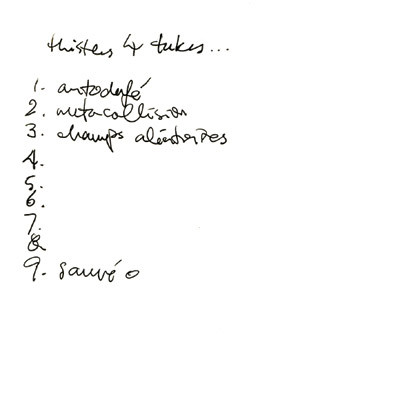 4 takes...
1. autodafé
2. metacollision
3. champs
4.
5.
6.
7.
8
9. sauvé o